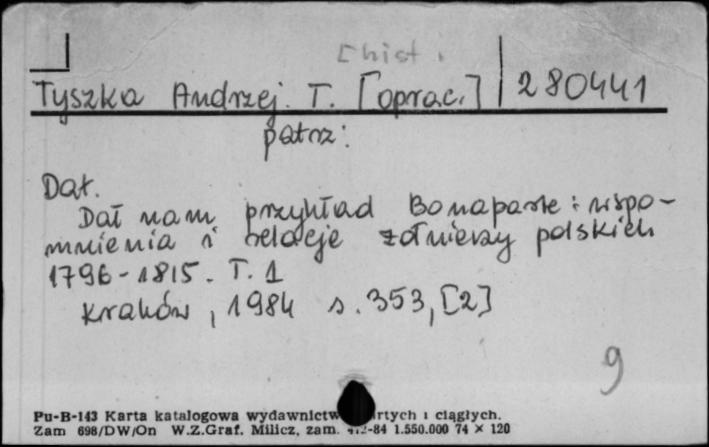 [hist.
Tyszka Andrzej. T. [oprac.] 280441
patrz:
Dat.
Dał nam przykład Bonaparte : wspo-
mnienia i relacje żołnierzy polskich
1796-1815. T. 1
Kraków, 1984 s. 353, [2]
9
Pu-B-143 Karta katalogowa wydawnictw rtych i ciągłych.
Zam 698/DW/On W.Z.Graf. Milicz, zam. -84 1.550.000 74 × 120